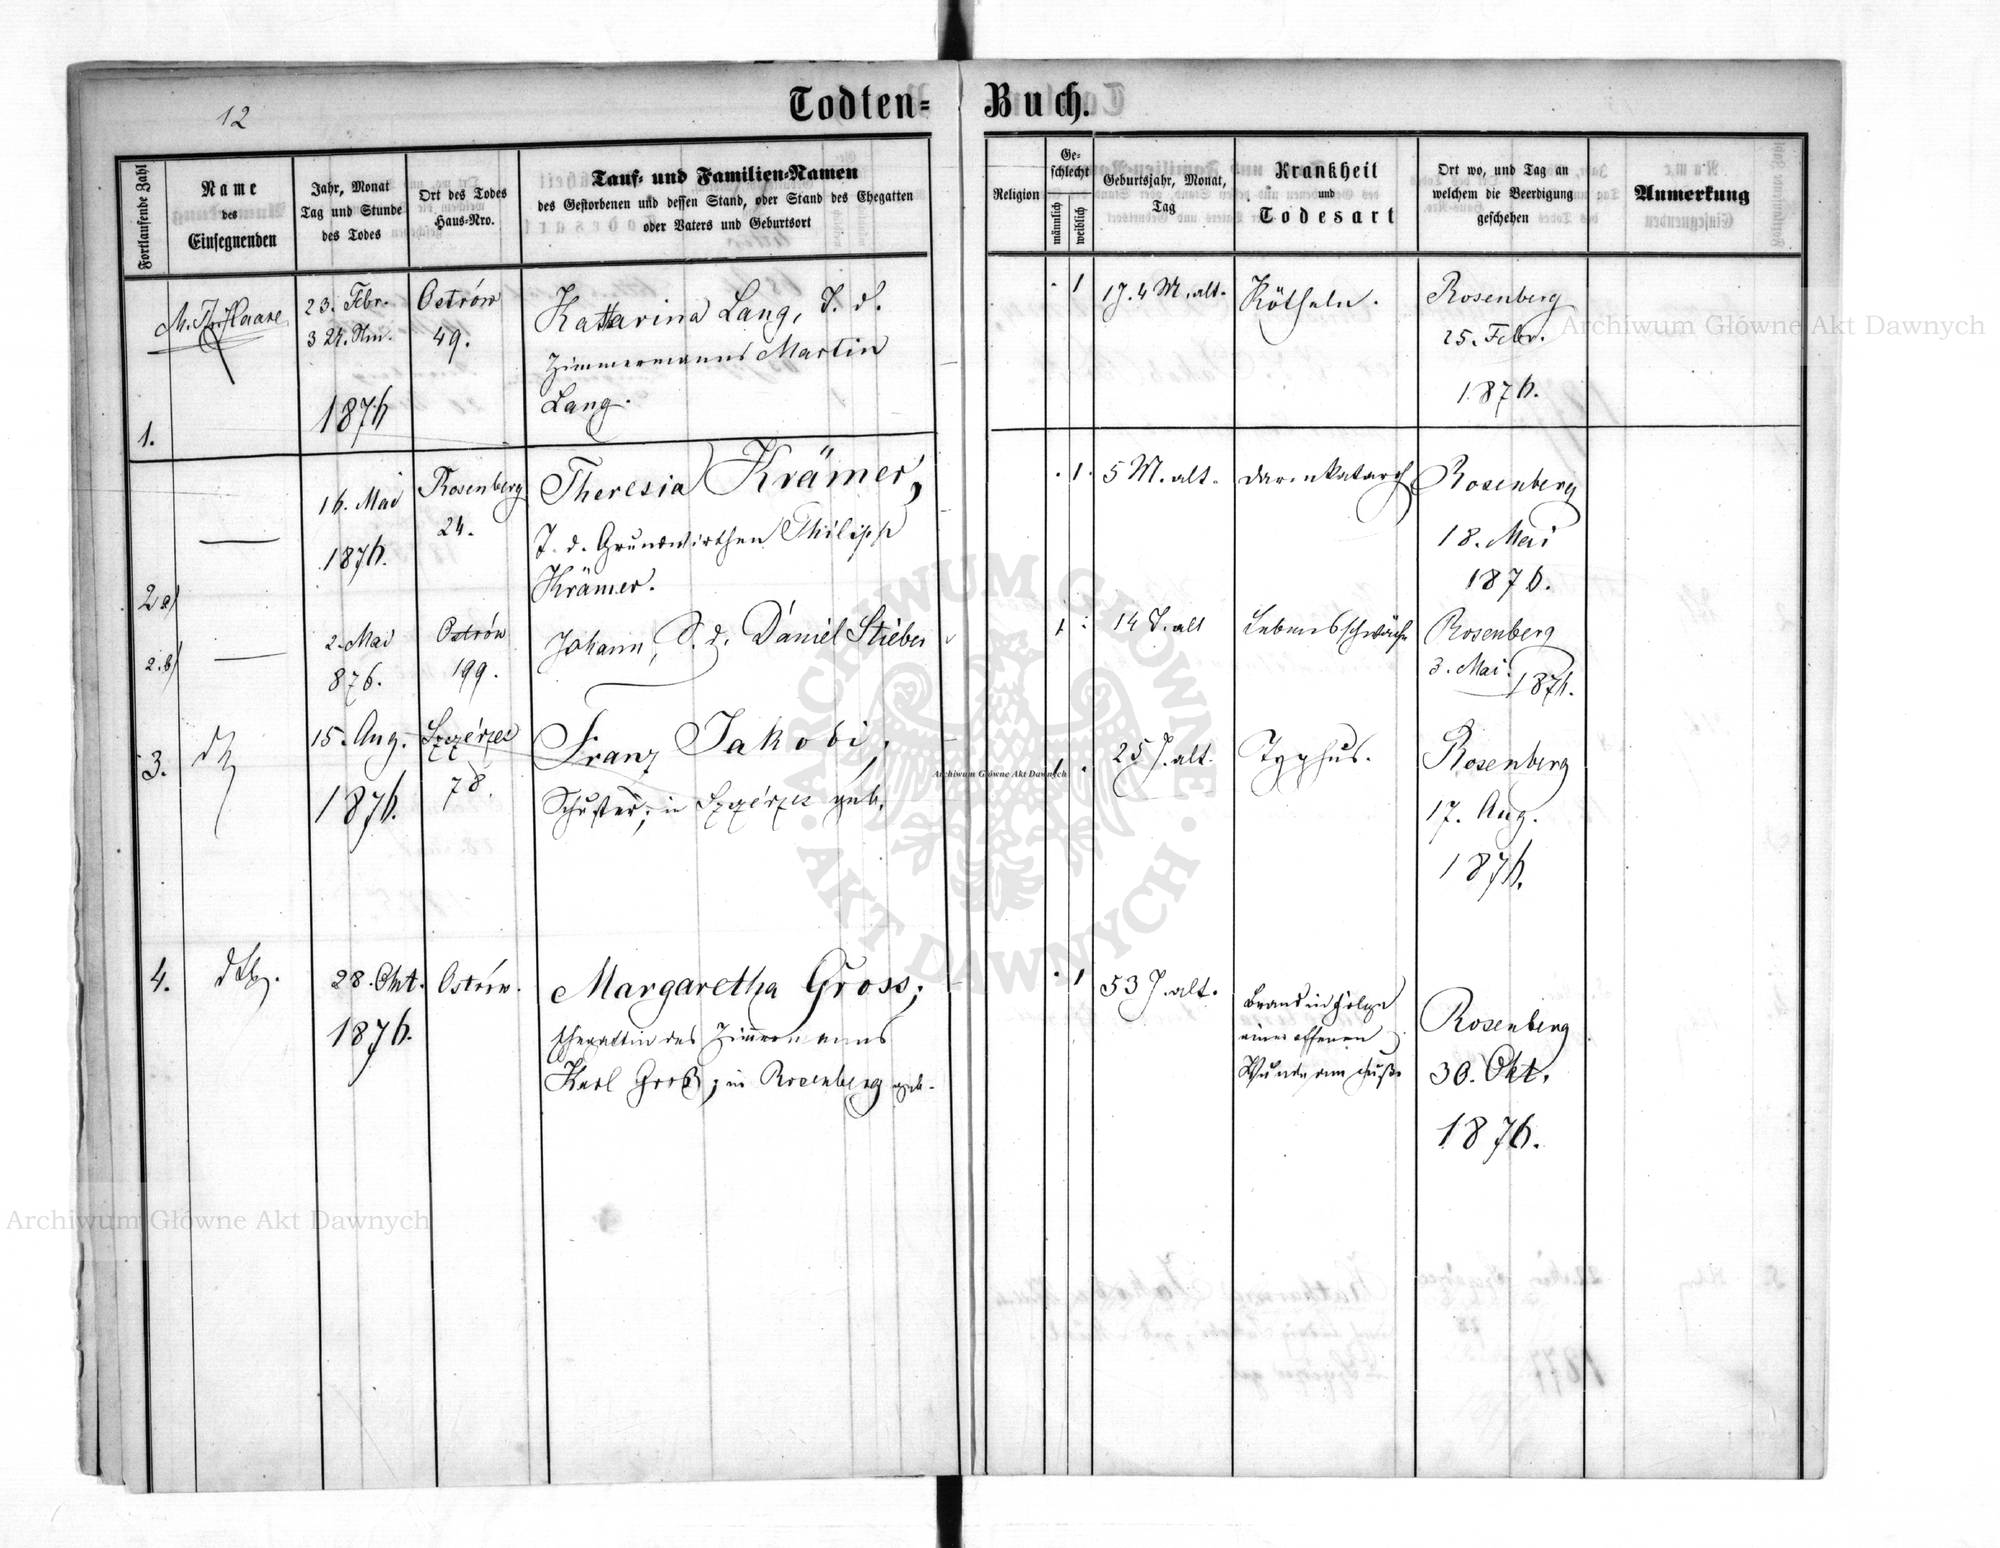 12
Todten-Buch.
Fortlaufende Zahl
Name
des
Einsegnenden
Jahr, Monat
Tag und Stunde
des Todes
Ort des Todes
Haus-Nro.
Tauf- und Familien-Namen
des Gestorbenen und dessen Stand, oder Stand des Ehegatten
oder Vaters und Geburtsort
Religion
Ge-
schlecht
männlich
weiblich
Geburtsjahr, Monat,
Tag
Krankheit
und
Todesart
Ort wo, und Tag an
welchem die Beerdigung
geschehen
Anmerkung
1.
Haase
23. Febr.
1876
Ostrów
49.
Katharina Lang, T. d.
Zimmermanns Martin
Lang.
1
1 J. 4 M. alt.
Rötheln.
Rosenberg
25. Febr.
1876.
2 a)
16. Mai
1876.
Rosenberg
24.
Theresia Krämer,
T. d. Grundwirthen Philipp
Krämer.
1.
5 M. alt.
Darmkatarrh
Rosenberg
18. Mai
1876.
2. b)
2. Mai
876.
Ostrów
199.
Johann, S. d. Daniel Stieber
1
14 T. alt
Lebensschwäche
Rosenberg
3. Mai.
1876.
3.
15. Aug.
1876.
Szczérzec
78.
Franz Jakobi,
Schuster; in Szczérzec geb.
1
25 J. alt.
Typhus.
Rosenberg
17. Aug.
1876.
4.
28. Okt.
1876.
Ostrów.
Margaretha Gross;
Ehegattin des Zimmermanns
Karl Groß; in Rosenberg geb.
1
53 J. alt.
Brand in Folge
einer offenen
Wunde am Fuße
Rosenberg
30. Okt.
1876.
Archiwum Główne Akt Dawnych
Archiwum Główne Akt Dawnych
Archiwum Główne Akt Dawnych
ARCHIWUM GŁÓWNE
AKT DAWNYCH